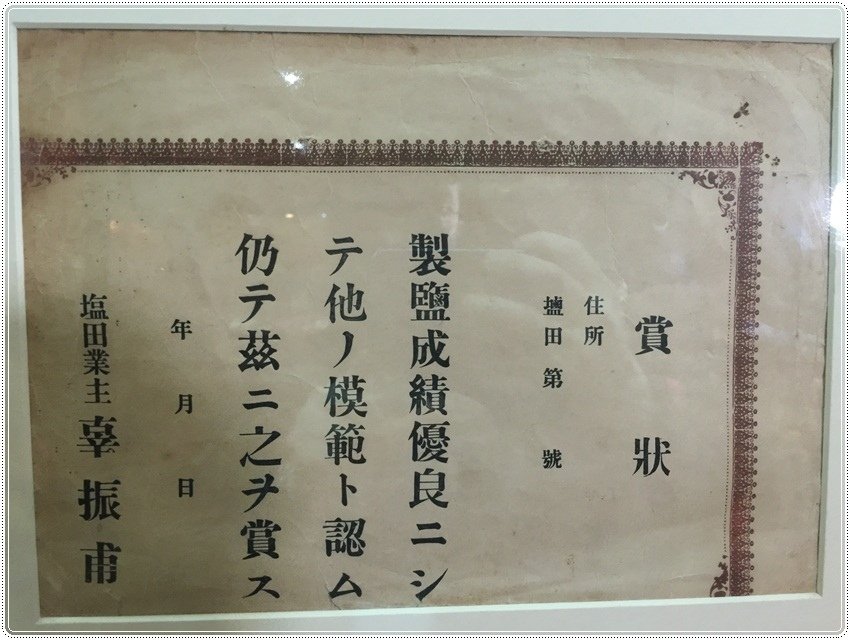 賞狀
住所
塩田第 號
製鹽成績優良ニシ
テ他ノ模範ト認ム
仍テ茲ニ之ヲ賞ス
年 月 日
塩田業主 辜振甫